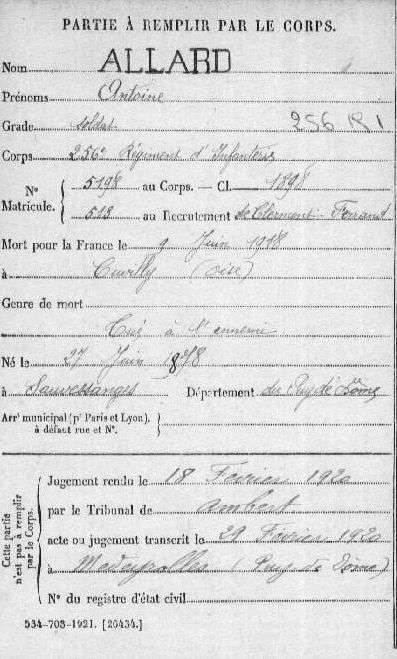 PARTIE À REMPLIR PAR LE CORPS.
Nom ALLARD
Prénoms Antoine
Grade soldat
256 RI
Corps 256e Régiment d'Infanterie
N° Matricule. { 5198 au Corps. — Cl. 1898
518 au Recrutement de Clermont-Ferrand
Mort pour la France le 9 Juin 1918
à Cuvilly (oise)
Genre de mort
Tué à l'ennemi
Né le 27 Juin 1878
à Sauvessanges Département du Puy de Dôme
Arrt municipal (pr Paris et Lyon), à défaut rue et N°.
Cette partie n'est pas à remplir par le Corps.
Jugement rendu le 18 Fevrier 1920
par le Tribunal de ambert
acte ou jugement transcrit le 29 Fevrier 1920
à Medeyrolles (Puy de Dôme)
N° du registre d'état civil
534-708-1921. [26434.]